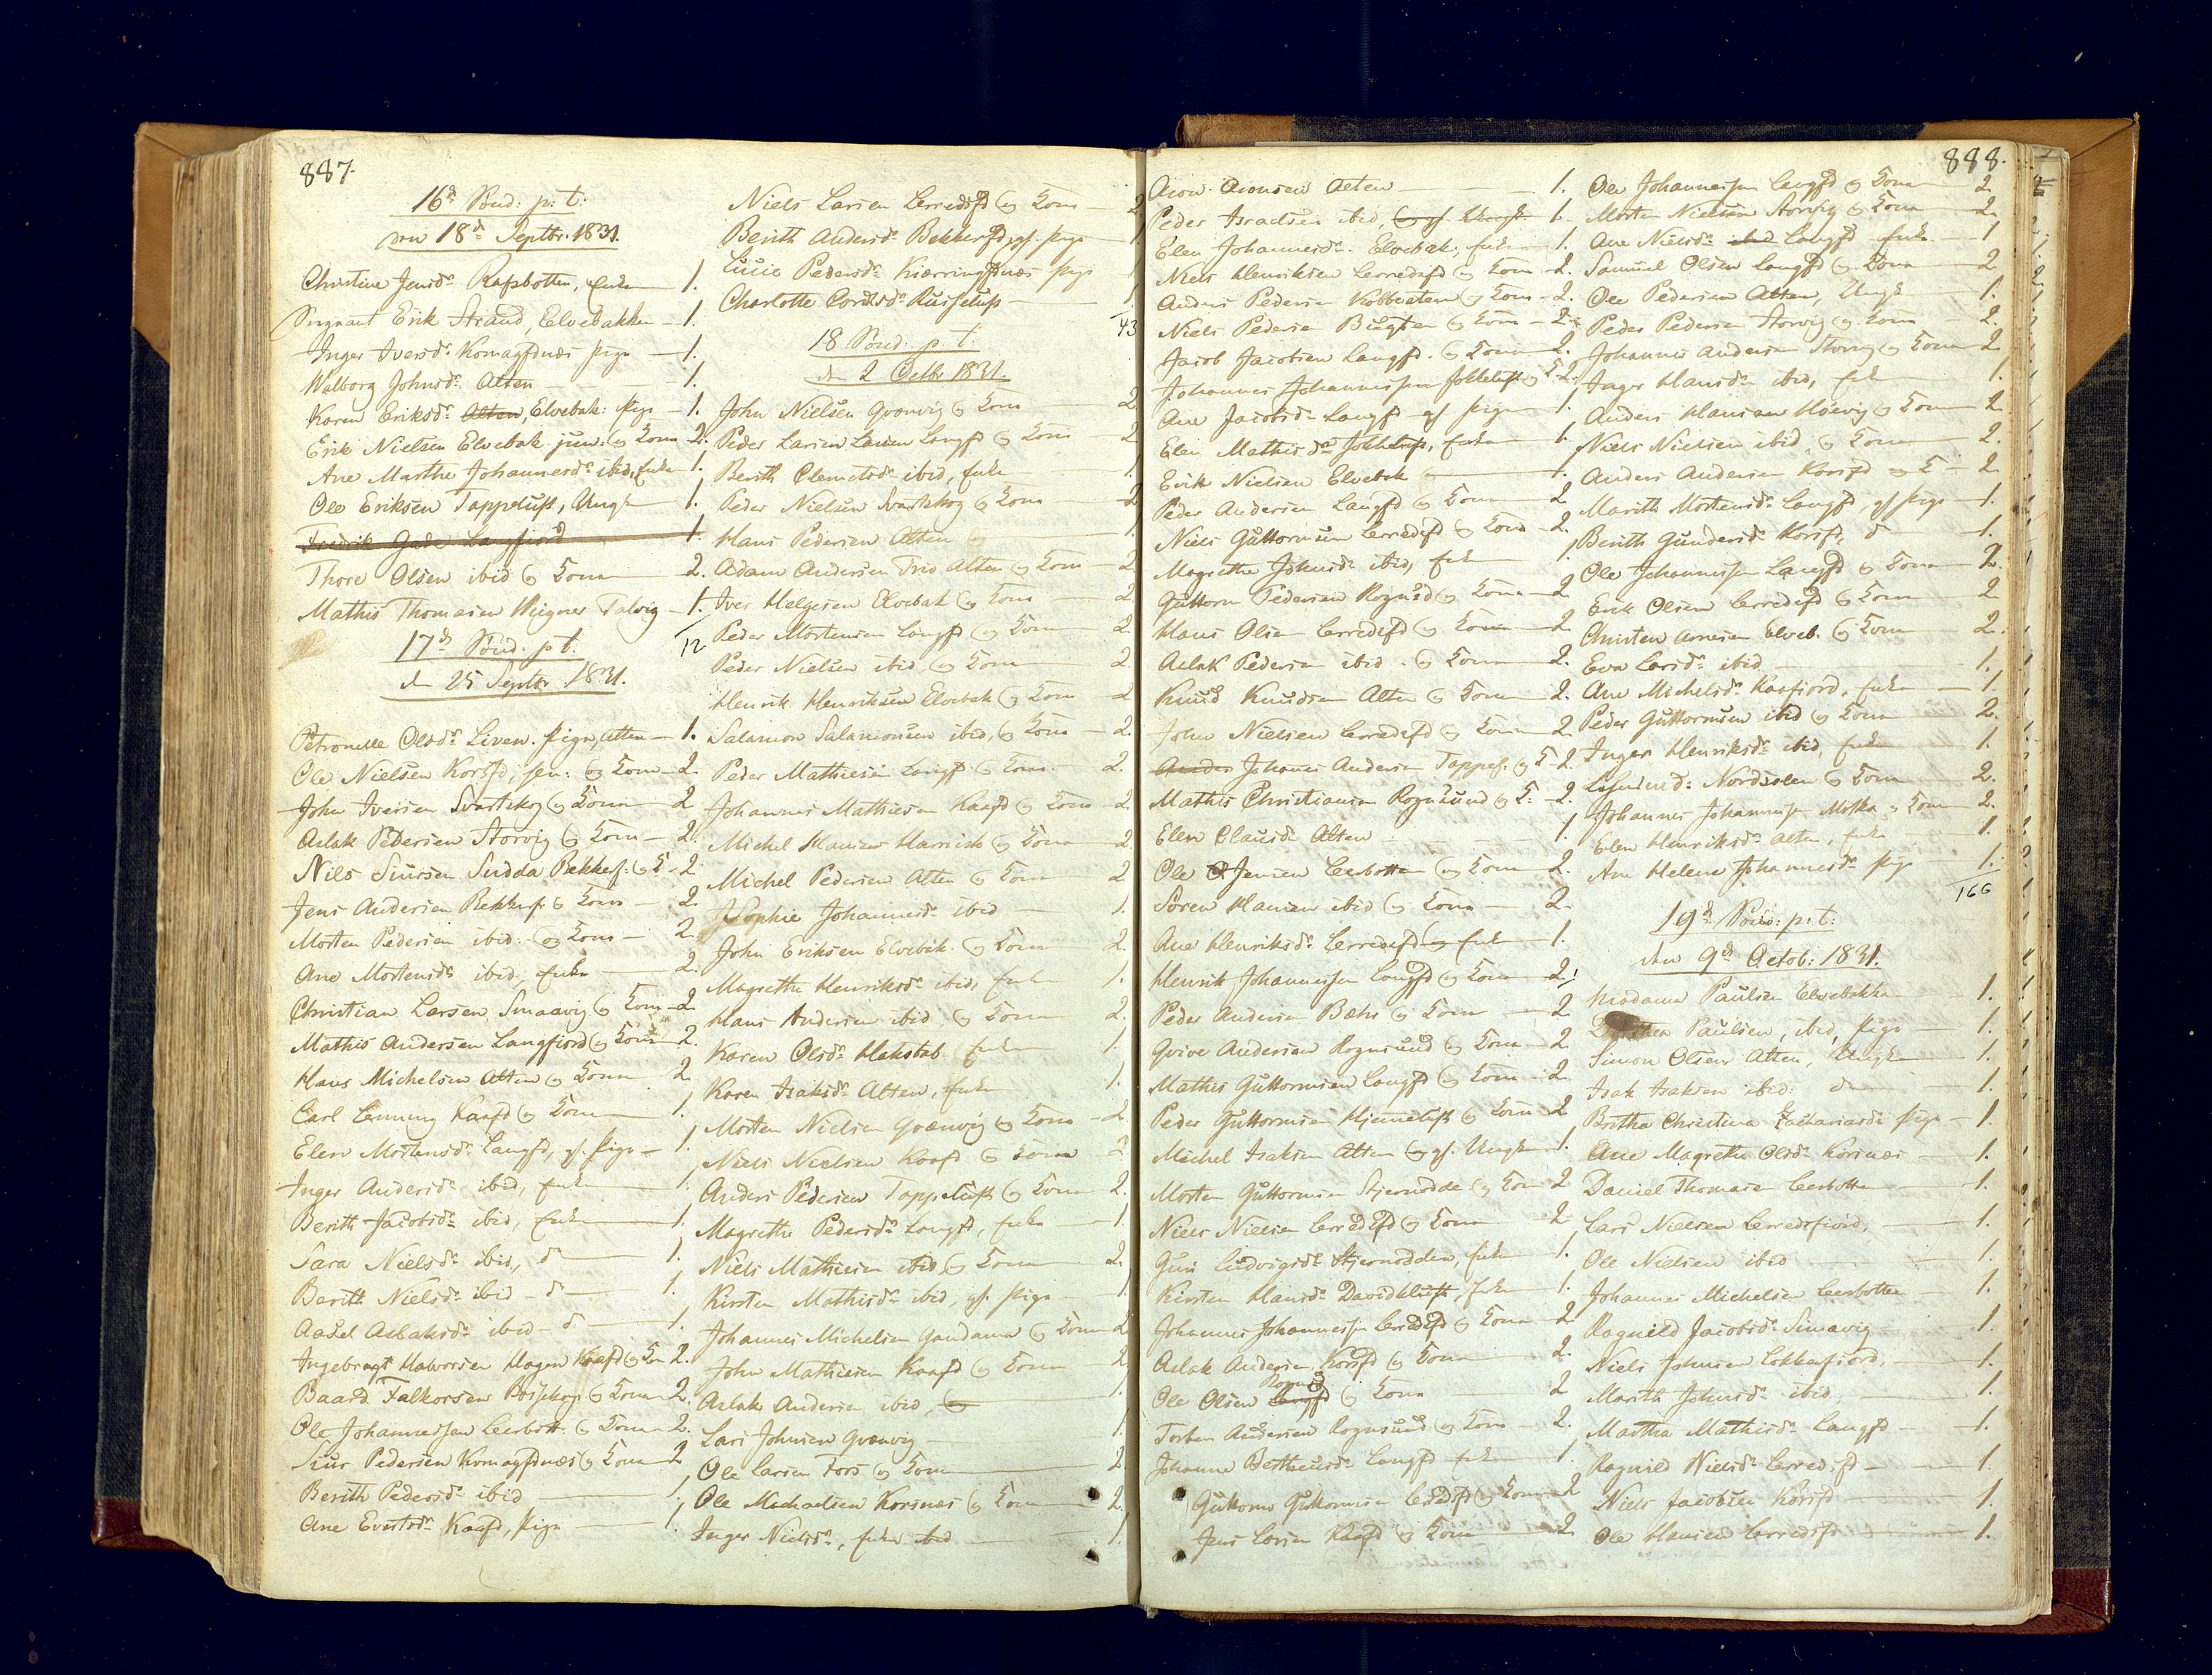 887.
16d Sönd: p: t:
den 18d Septbr. 1831.
Christine Jensdr Rafsbotten, Enke — 1.
Sergeant Erik Strand, Elvebakken — 1.
Inger Iversdr Komagfdnæs Pige — 1.
Walborg Johnsdr Alten — 1.
Karen Eriksdr Alten, Elvebak: Pige — 1.
Erik Nielsen Elvebak jun: og Kone 2.
Ane Marthe Johannesdr ibid, Enke 1.
Ole Eriksen Tappeluft, Ungk — 1.
Fredrik Gade Langfiord 1.
Thore Olsen ibid og Kone 2.
Mathis Thomasen Talvig — 1.
12
17d Sönd: p: t:
d 25 Septbr 1831.
Petronelle Olsdr Pige, Alten — 1.
Ole Nielsen Korsfd, sen: og Kone — 2
John Iversen Svartskog og Kone 2
Aslak Pedersen Storvig og Kone — 2.
Nils Siursen Sudda Bekkerf: og K — 2
Jens Andersen Bekkerf. og Kone — 2.
Morten Pedersen ibid: og Kone — 2
Ane Mortensdr ibid, Enke — 2.
Christian Larsen Smaavig og Kone — 2
Mathis Andersen Langfiord og Kone 2.
Hans Michelsen Alten og Kone 2
Carl Lenning Kaafd og Kone 1.
Elen Mortensdr Langfd, gl. Pige — 1
Inger Andersdr ibid, Enke — 1.
Berith Jacobsdr ibid, Enke — 1.
Sara Nielsdr ibid, do — 1.
Berith Nielsdr ibid — do — 1.
Aasel Aslaksdr ibid — do — 1.
Ingebrigt Halvorsen Hagen Kaafd og Kon 2.
Baard Falkorsen Bossekop og Kone 2.
Ole Johannessen Leerbott. og Kone 2.
Siur Pedersen Komagfdnæs og Kone 2
Berith Pedersdr ibid — 1.
Ane Evertsdr Kaafd, Pige — 1.
Niels Larsen Lerredsfd og Kone — 2.
Berith Andersdr Bekkerfd, gl. Pige 1.
Lucie Pedersdr Kiærringfdnæs Pige 1
Charlotte Cordtsdr Russeluft — 1.
43
18 Sönd: p: t:
d 2 Octbr 1831.
John Nielsen Qvænvig og Kone 2
Peder Larsen Langfd og Kone 2
Berith Clemetsdr ibid, Enke — 1.
Peder Nielsen Svartskog og Kone 2
Hans Pedersen Alten — 1.
Adam Andersen Alten og Kone — 2
Iver Helgesen Elvebak og Kone — 2
Peder Mortensen Langfd og Kone 2
Peder Nielsen ibid og Kone — 2.
Henrik Henriksen Elvebak og Kone 2
Salamon Salamonsen ibid, og Kone — 2.
Peder Mathisen Langfd og Kone. 2.
Johannes Mathisen Kaafd og Kone 2.
Michel Hansen og Kone 2
Michel Pedersen Alten og Kone 2
Sophie Johannesdr ibid — 1.
John Eriksen Elvebak. og Kone 2.
Magrethe Henriksdr ibid, Enke 1.
Hans Andersen ibid og Kone 2.
Karen Olsdr Enke 1.
Karen Isaksdr Alten, Enke 1.
Morten Nielsen Qvænvig og Kone — 2
Niels Nielsen Kaafd og Kone 2
Anders Pedersen Tappeluft og Kone 2.
Magrethe Pedersdr Langfd, Enke — 1
Niels Mathisen ibid, og Kone 2.
Kirsten Mathisdr ibid, gl. Pige — 1.
Johannes Michelsen og Kone 2
John Mathisen Kaafd og Kone 2
Aslak Andersen ibid, og 1.
Lars Johnsen Qvænvig — 1.
Ole Larsen Fors og Kone 2.
Ole Michaelsen Korsnæs og Kone 2.
Inger Nielsdr, Enke ibid — 1.
888.
Aron Aronsen Alten — 1.
Peder Israelsen ibid, og gl. Ungk 1.
Elen Johannesdr Elvebak, Enke 1.
Niels Henriksen Lerredsfd og Kone — 2.
Anders Pedersen og Kone — 2.
Niels Pedersen Bugten og Kone — 2.
Jacob Jacobsen Langfd. og Kone 2.
Johannes Johannessen Jökkeluft og K 2.
Ane Jacobsdr Langfd gl Pige 1.
Elen Mathisdr Jökkeluft, Enke 1.
Erik Nielsen Elvebak — 1.
Peder Andersen Langfd og Kone 2
Niels Guttormsen Lerredsfd og Kone 2.
Magrethe Johnsdr ibid, Enke 1.
Guttorm Pedersen Rognsd og Kone 2
Hans Olsen Lerredsfd og Kone 2
Aslak Pedersen ibid. og Kone 2.
Knud Knudsen Alten og Kone 2.
John Nielsen Lerredsfd og Kone 2
Anders Johannes Andersen Tappel. og K 2.
Mathis Christiansen Rognsund og K: 2.
Elen Clausdr Alten — 1.
Ole Jensen Leerbotten og Kone 2.
Sören Hansen ibid og Kone — 2
Ane Henriksdr Lerredsfd og Enke 1.
Henrik Johannessen Langfd og Kone 2.
Peder Andersen Bæhr og Kone — 2
Qvive Andersen Rognsund og Kone — 2
Mathis Guttormsen Langfd og Kone 2
Peder Guttormsen og Kone 2
Michel Isaksen Alten og gl. Ungk 1.
Morten Guttormsen Stjernodde og Kone 2
Niels Nielsen Lerredsfd og Kone 2
Guri Ludvigsdr Stjernodden, Enke 1.
Kirsten Hansdr Davidsluft, Enke 1.
Johannes Johannessen Lerredsfd og Kone 2
Aslak Andersen Korsfd og Kone 2.
Ole Olsen Langfd Rognsd og Kone 2
Torben Andersen Rognsund og Kone — 2.
Johanne Bertheusdr Langfd Enke 1.
Guttorm Guttormsen Lerredsfd og Kone 2
Jens Larsen Kaafd og Kone 2
Ole Johannessen Langfd og Kone 2
Morten Nielsen Storvig og Kone 2.
Ane Nielsdr ibid Langfd Enke 1
Samuel Olsen Langfd og Kone 2
Ole Pedersen Alten, Ungk 1.
Peder Pedersen Storvig og Kone 2.
Johannes Andersen Storvig og Kone 2
Inger Hansdr ibid, Enke 1.
Anders Hansen og Kone 2
Niels Nielsen ibid og Kone 2.
Anders Andersen Korsfd og K — 2
Marith Mortensdr Langfd gl Pige 1.
Berith Gundersdr Korsf. do — 1.
Ole Johannessen Langfd og Kone 2.
Erik Olsen Lerredsfd og Kone 2
Christen Arnesen Elveb. og Kone 2.
Eva Larsdr ibid — 1.
Ane Michelsdr Kaafiord, Enke — 1.
Peder Guttormsen ibid og Kone 2.
Inger Henriksdr ibid, Enke 1.
og Kone 2.
Johannes Johannessen og Kone 2.
Elen Henriksdr Alten, Enke 1.
Ane Helene Johannesdr Pige 1.
166
19d Sönd: p: t:
den 9d Octob: 1831.
Madame Paulsen Elvebakken 1.
Paulsen, ibid, Pige — 1.
Simon Olsen Alten, Ungk 1.
Isak Isaksen ibid: do 1.
Birtha Christina Zachariasdr Pige 1.
Ane Magrethe Olsdr Korsnæs — 1.
Daniel Thomasen Leerbotten 1.
Lars Nielsen Lerredsfiord, — 1.
Ole Nielsen ibid — 1.
Johannes Michelsen Leerbotten — 1.
Ragnild Jacobsdr Smavig 1.
Niels Johnsen Lokkerfiord, — 1.
Marith Johnsdr ibid, — 1.
Martha Mathisdr Langfd — 1.
Ragnild Nielsdr Lerredsfd — 1.
Niels Jacobsen Korsfd — 1.
Ole Hansen Lerredsfd — 1.